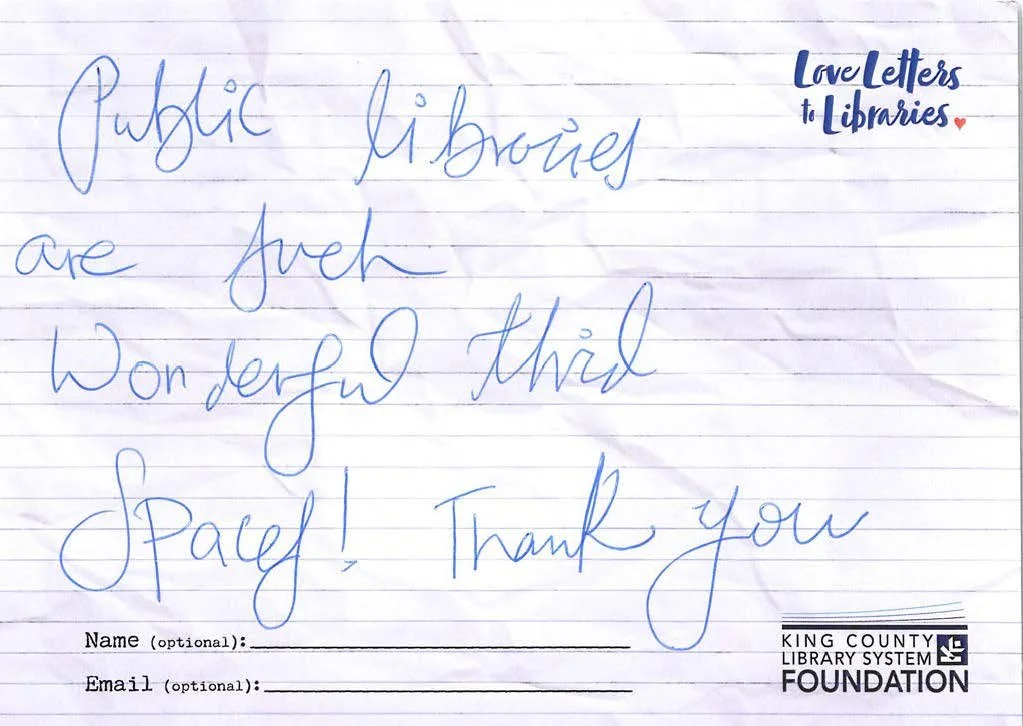 Love Letters
to Libraries
Public libraries
are such
Wonderful third
Spaces! Thank you
Name (optional):
Email (optional):
KING COUNTY
LIBRARY SYSTEM
FOUNDATION